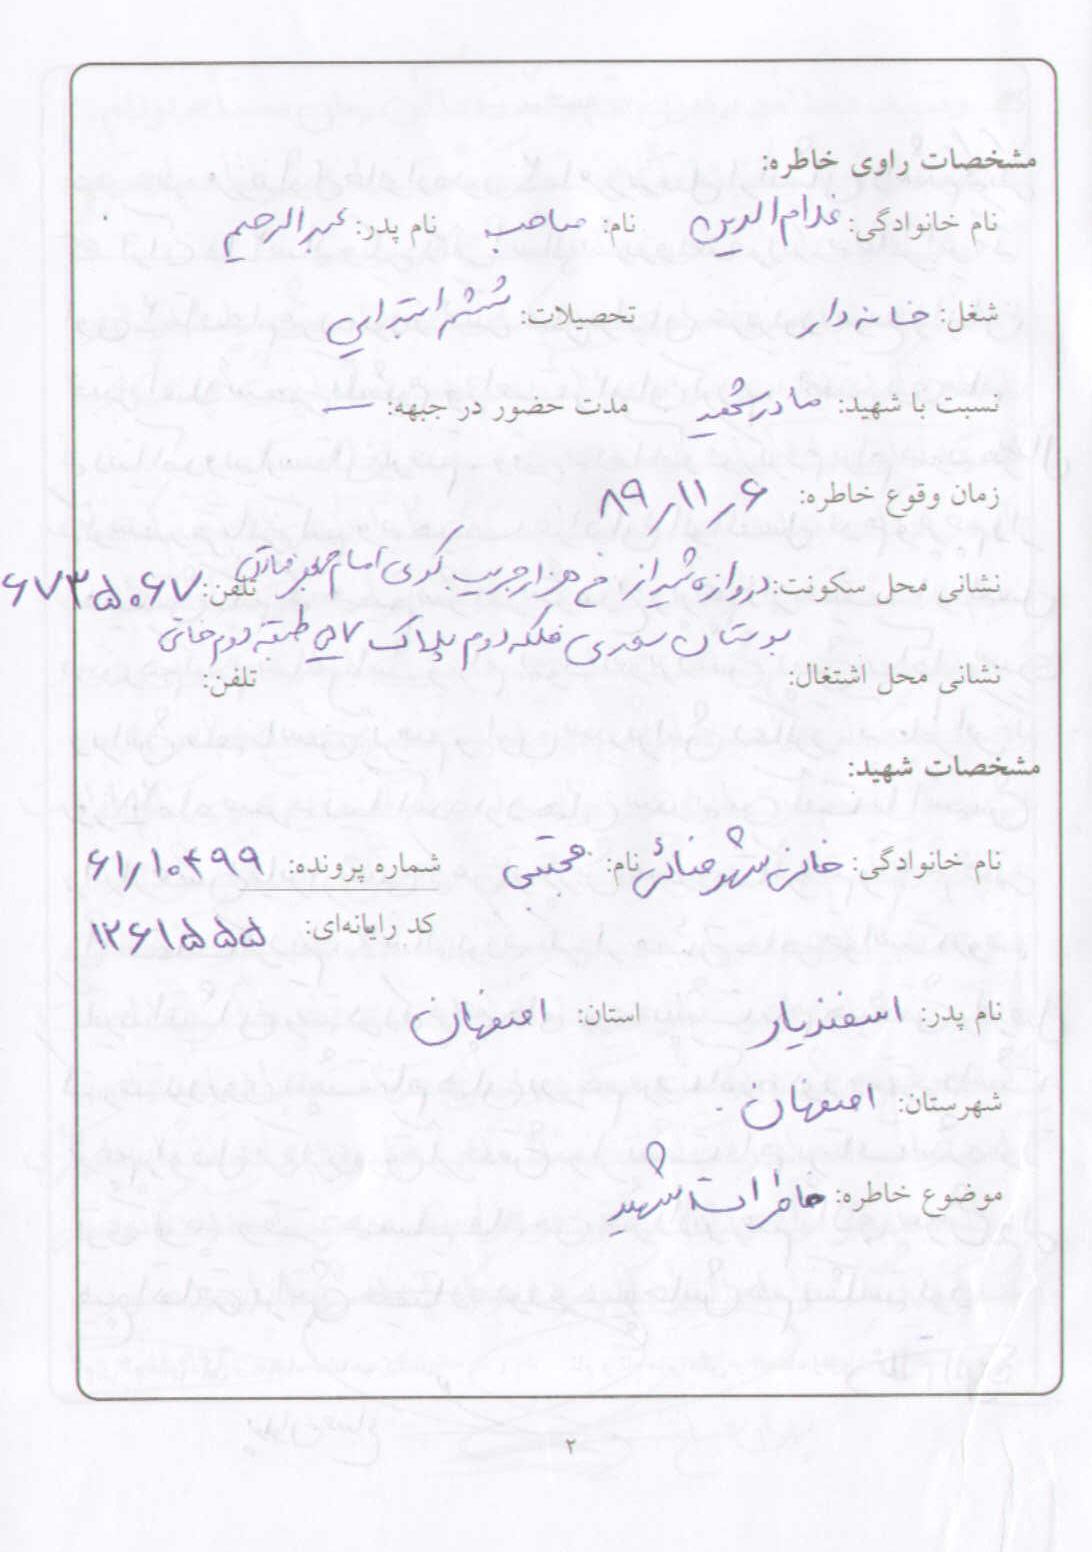 مشخصات راوی خاطره:
نام خانوادگی: غلام الدین نام: صاحب نام پدر: عبدالرحیم
شغل: خانه دار تحصیلات: ششم ابتدایی
نسبت با شهید: مادر شهید مدت حضور در جبهه: —
زمان وقوع خاطره: ۸۹/۱۱/۶
نشانی محل سکونت: دروازه شیراز خ هزار جریب کوی امام جعفر صادق تلفن: ۶۷۳۵۰۶۷
بوستان سعدی فلکه دوم پلاک ۵۷ طبقه دوم
نشانی محل اشتغال: تلفن:
مشخصات شهید:
نام خانوادگی: خازنه شهرضائی نام: مجتبی شماره پرونده: ۶۱/۱۰۴۹۹
کد رایانه‌ای: ۱۲۶۱۵۵۵
نام پدر: اسفندیار استان: اصفهان
شهرستان: اصفهان
موضوع خاطره: خاطرات شهید
۲